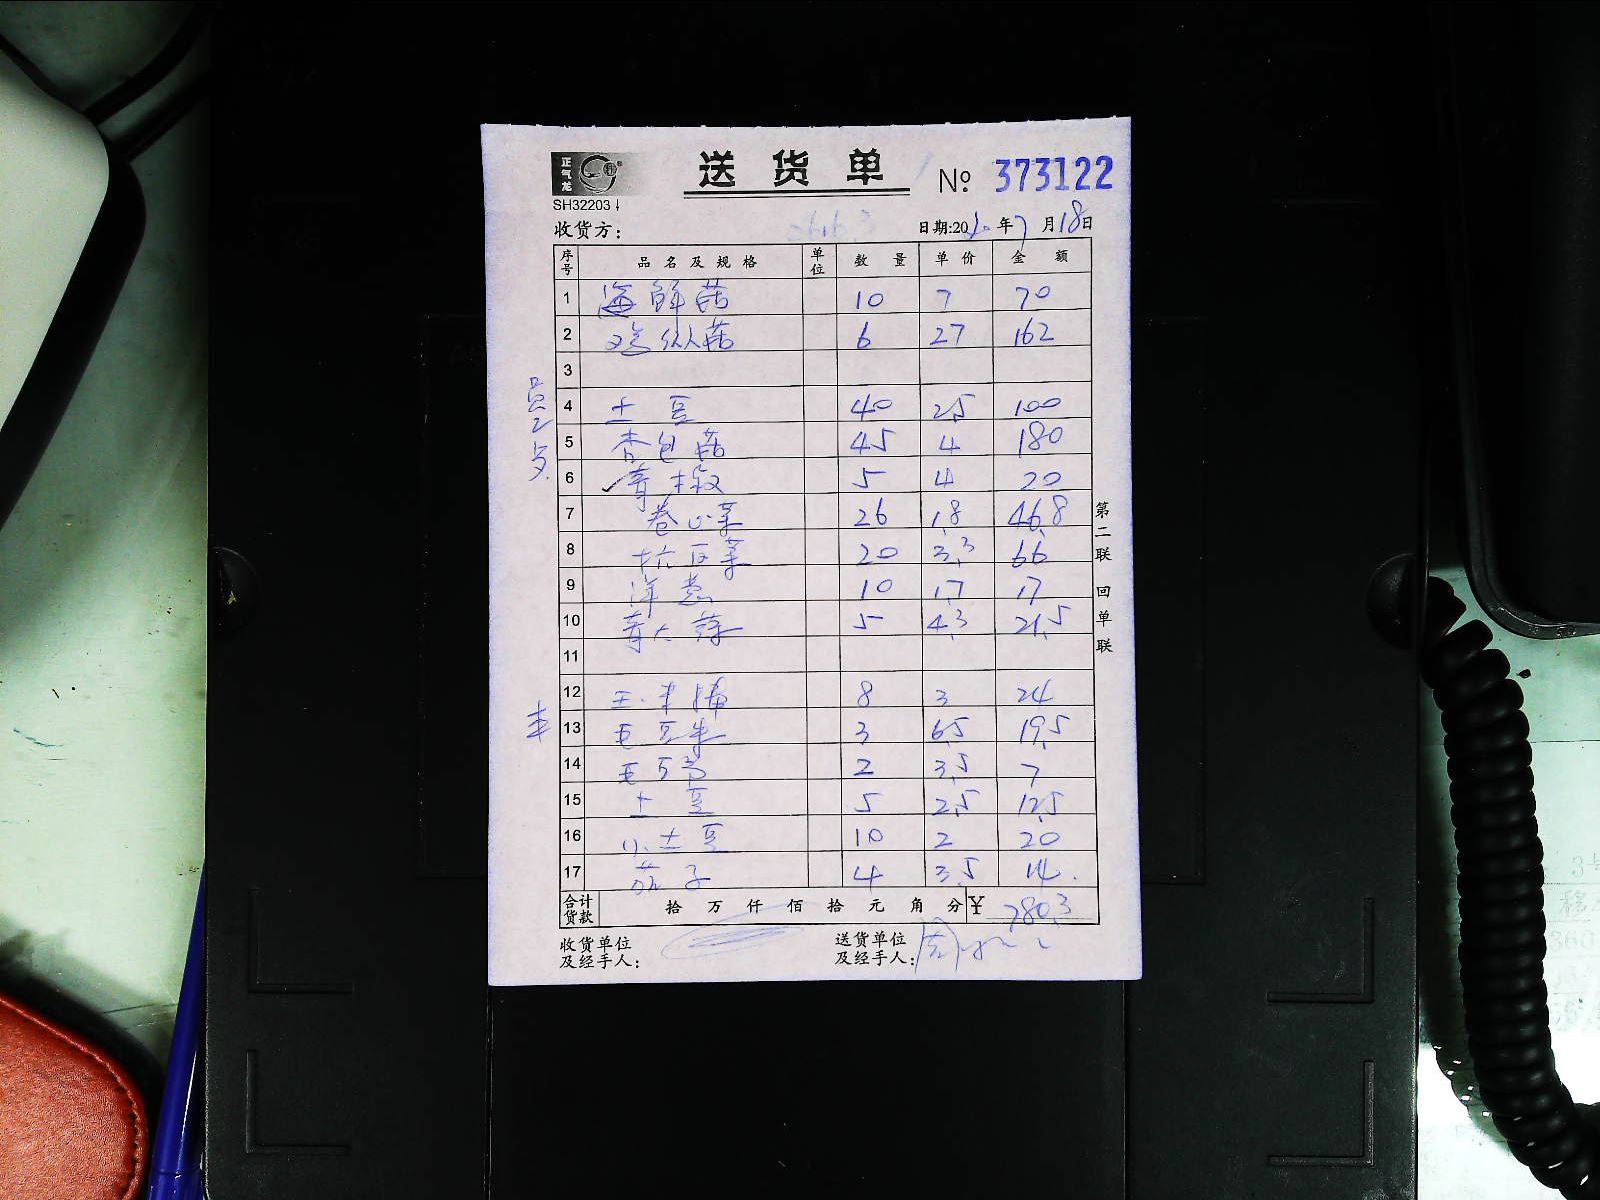 正气龙
送 货 单
№ 373122
SH32203
收货方：
日期:20 年7月18日
序号 品名及规格 单位 数量 单价 金额
1 海鲜菇 10 7 70
2 鸡枞菇 6 27 162
3
4 土豆 40 2.5 100
5 杏包菇 45 4 180
6 青椒 5 4 20
7 卷心菜 26 1.8 46.8
8 杭白菜 20 3.3 66
9 洋葱 10 1.7 17
10 青大蒜 5 4.3 21.5
11
12 玉米棒 8 3 24
13 毛豆米 3 6.5 19.5
14 2 3.5 7
15 土豆 5 2.5 12.5
16 小土豆 10 2 20
17 茄子 4 3.5 14.
合计货款 拾 万 仟 佰 拾 元 角 分 ¥ 780.3
收货单位
及经手人：
送货单位
及经手人：
第二联 回单联